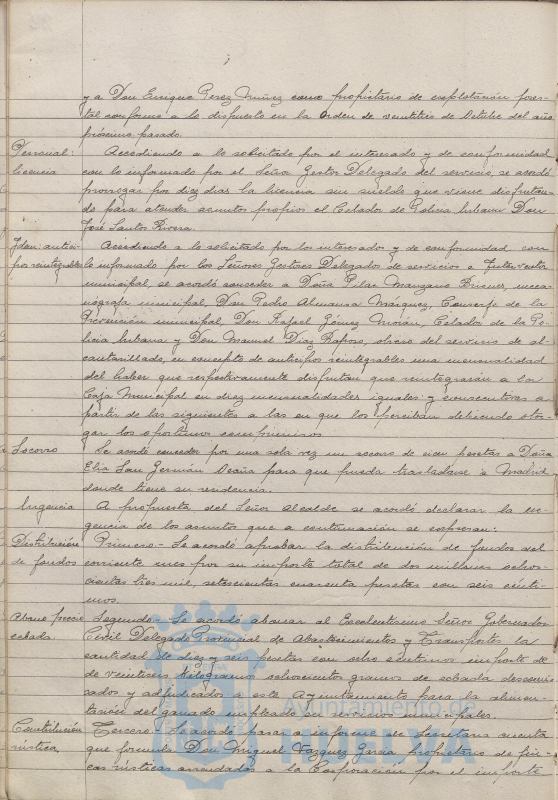 y a Don Enrique Perez Muñez como propietario de explotación fores-
tal conforme a lo dispuesto en la Orden de veintitres de Octubre del año
próximo pasado.
Personal: licencia
Accediendo a lo solicitado por el interesado y de conformidad
con lo informado por el Señor Gestor Delegado del servicio, se acordó
prorrogar por diez dias la licencia sin sueldo que viene disfrutan-
do para atender asuntos propios el Celador de Policia Urbana Don
José Santos Rivera.
Idem: antici-
pos reintegrables
Accediendo a lo solicitado por los interesados y de conformidad con
lo informado por los Señores Gestores Delegados de servicios e Interventor
municipal, se acordó conceder a Doña Pilar Manzano meca-
nógrafa municipal, Don Pedro Almansa Máiquez, Conserje de la
Prevención municipal, Don Rafael Gómez Morán, Celador de la Po-
licia Urbana y Don Manuel Diaz Raposo, obrero del servicio de al-
cantarillado, en concepto de anticipos reintegrables una mensualidad
del haber que respectivamente disfrutan que reintegrarán a la
Caja Municipal en diez mensualidades iguales y consecutivas a
partir de las siguientes a las en que los perciban debiendo otor-
gar los oportunos compromisos.
Socorro
Se acordó conceder por una sola vez un socorro de cien pesetas a Doña
Elia San Germán Ocaña para que pueda trasladarse a Madrid
donde tiene su residencia.
Urgencia
A propuesta del Señor Alcalde se acordó declarar la ur-
gencia de los asuntos que a continuación se expresan:
Distribución
de fondos
Primero.- Se acordó aprobar la distribución de fondos del
corriente mes por su importe total de dos millones ochos-
cientas tres mil, setescientas cuarenta pesetas con seis cénti-
mos.
Abono precio
cebada
Segundo.- Se acordó abonar al Excelentisimo Señor Gobernador
Civil Delegado Provincial de Abastecimientos y Transportes la
cantidad de diez y seis pesetas con ocho céntimos importe de
de veintiseis kilogramos ochoscientos gramos de cebada
y adjudicados a este Ayuntamiento para la alimen-
tación del ganado empleado en servicios municipales.
Constitución
rústica
Tercero.- Se acordó pasar a informe de Secretaria cuenta
que formula Don Miguel Vazquez Garcia propietario de fin-
cas rústicas arrendadas a la Corporación por el importe
Ayuntamiento de
HUELVA